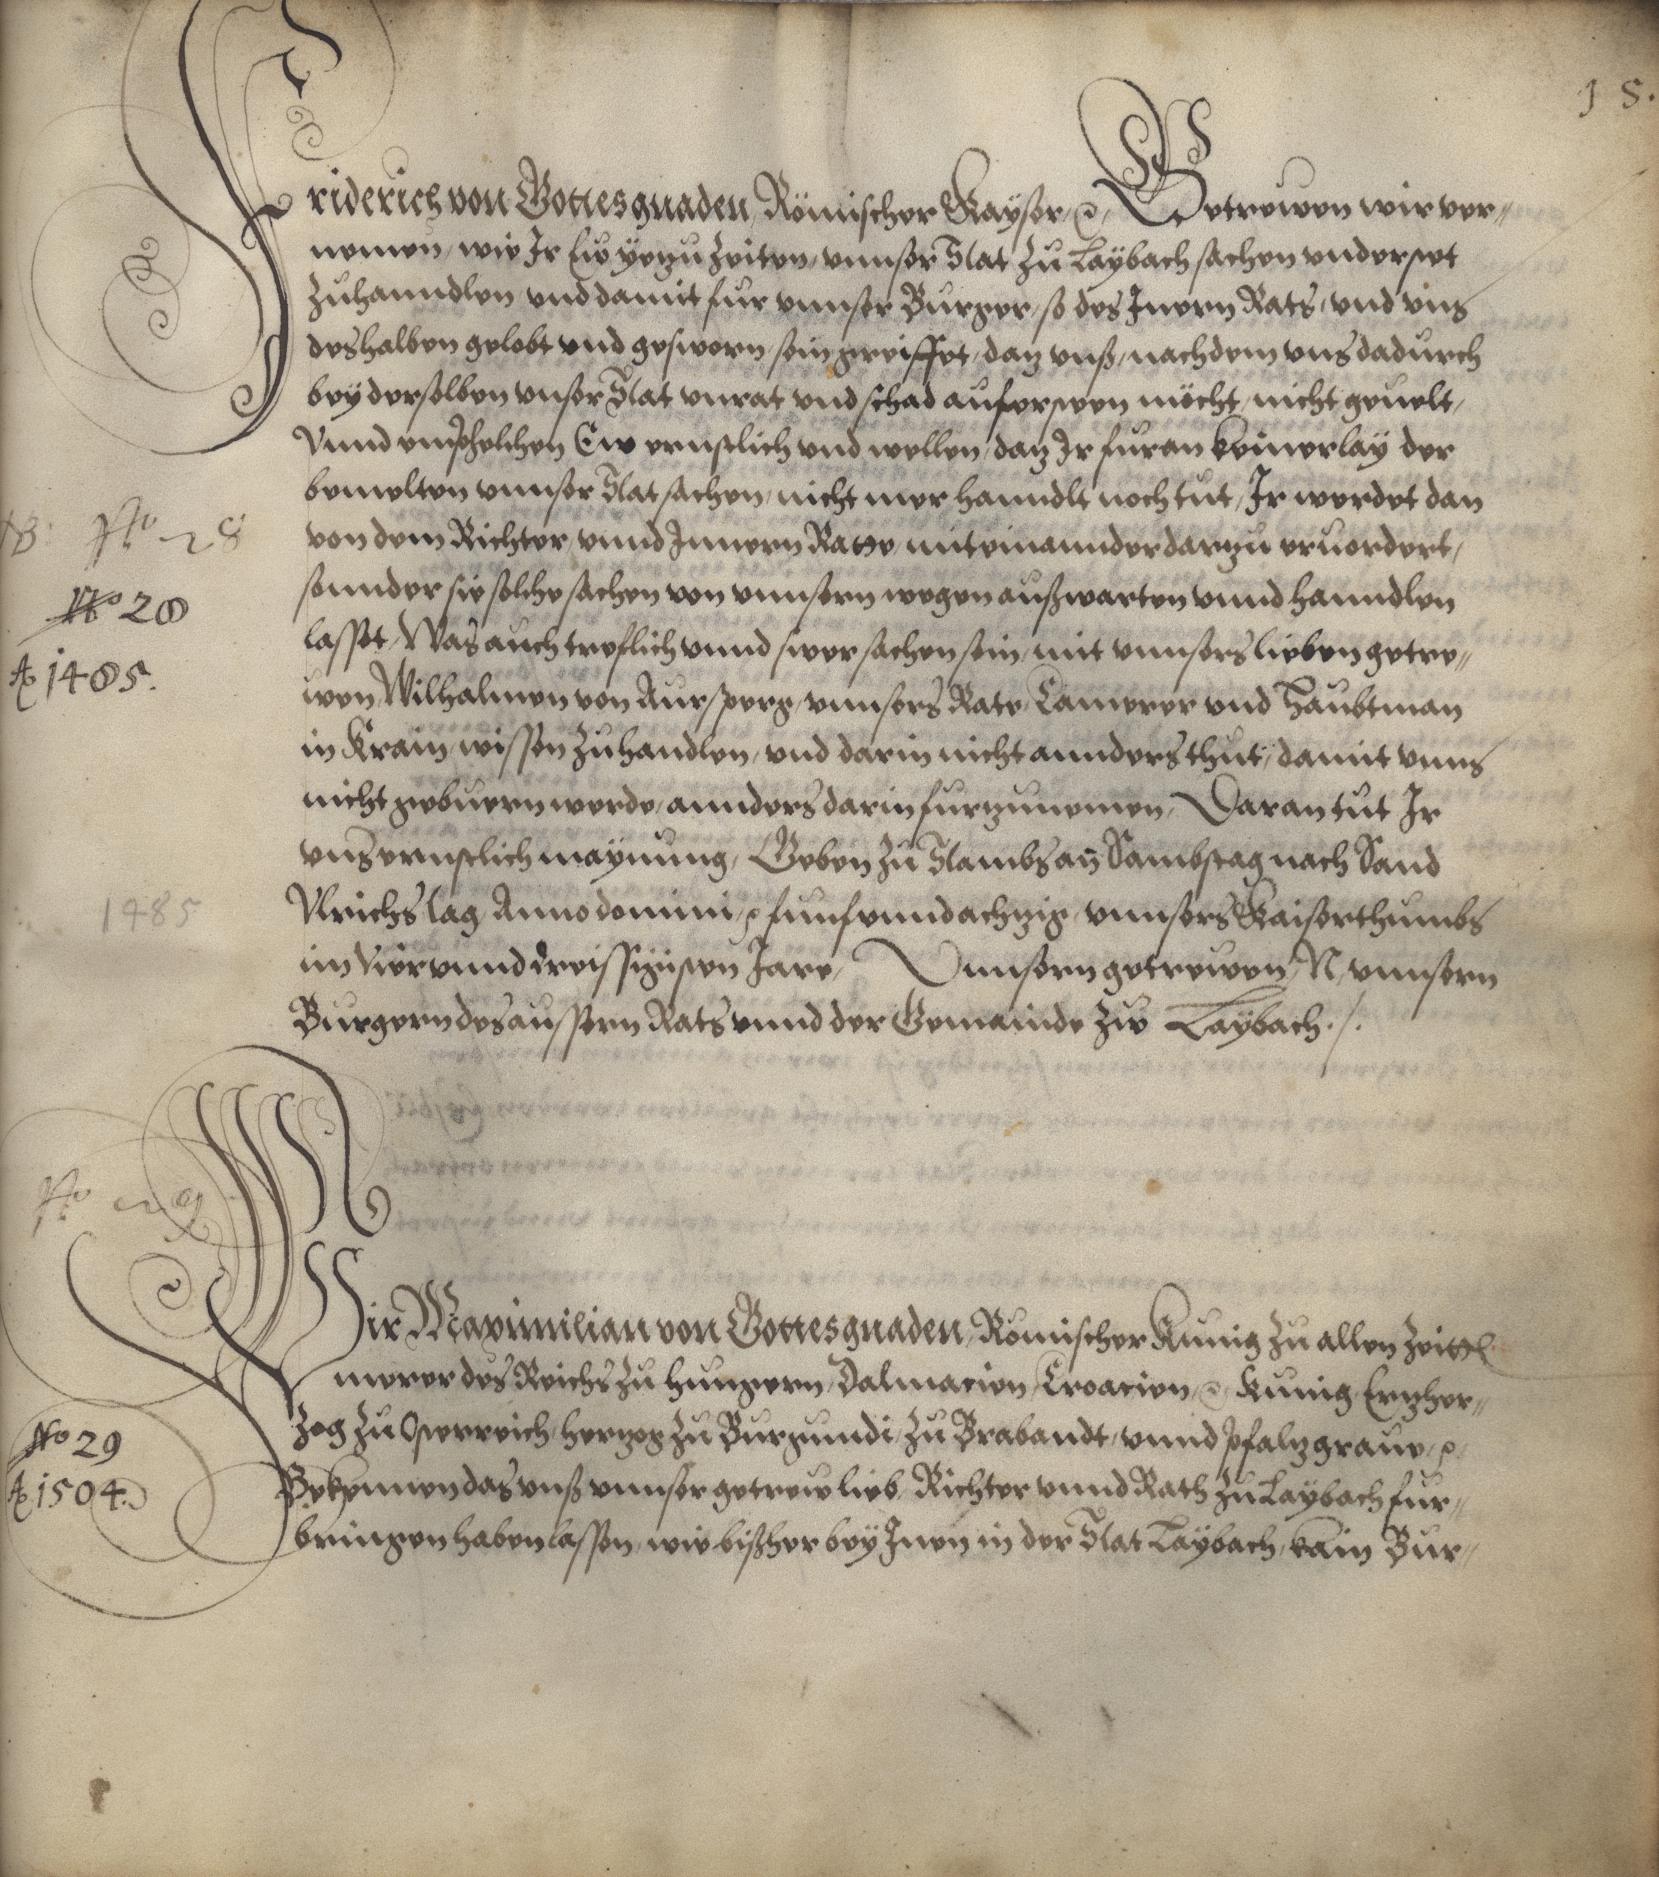 18.
Friderich von Gottes gnaden, Römischer Kayser, etc, Getrewen wir ver-,,
nemen, wie Ir Euch yetzu Zeiten, unnser Stat Zu Laybach sachen understet
Zuhanndlen und damit fur unnser Burger, so des Innern Rats, und uns
deshalben gelobt und gesworn sein greiffet, daz unß, nachdem uns dadurch
bey derselben unser Stat unrat und schad aufersteen möcht, nicht geuelt,
Unnd emphelchen Ew ernstlich und wellen, daz Ir furan keinerlay der
bemelten unnser Stat sachen, nicht mer hanndlt noch tut, Ir werdet dan
von dem Richter, unnd Innern Rate, miteinannder dartzu eruordert,
sonnder sie solche sachen von unnsern wegen außwarten unnd hanndlen
lasset, Was auch treflich unnd swer sachen sein, mit unnsers lieben getre,,
wen, Wilhalmen von Aursperg, unnsers Rats, Camerer und Haubtman
in Krain, wissen Zuhandlen, und darin nicht annders thut, damit unns
nicht gebueren werde, annders darin furzunemen, Daran tut Ir
uns ernstlich maynung, Geben Zu Stambs an Sambstag nach Sand
Ulrichs tag Anno domini, etc funfunndachzig, unnsers Kaiserthumbs
im Vierunnddreissigisten Jare, Unnsern getrewen, N, unnsern
Burgern des aussern Rats unnd der Gemainde zw Laybach ./.
NB: No 28
No 28
Ao 1485.
1485
No 29
Wir Maximilian von Gottes gnaden, Römischer Kunig Zu allen Zeitten
merer des Reichs Zu Hungern, Dalmacien, Croacien, etc Kunig, Ertzher,,
Zog Zu Osterreich, hertzog Zu Burgundi, Zu Brabandt, unnd Pfaltzgraue, etc
Bekennen das unß unnser getrew lieb, Richter unnd Rath Zu Laybach fur,,
bringen haben lassen, wie bißher bey Inen in der Stat Laybach, kain Bur,,
No 29
Ao 1504.